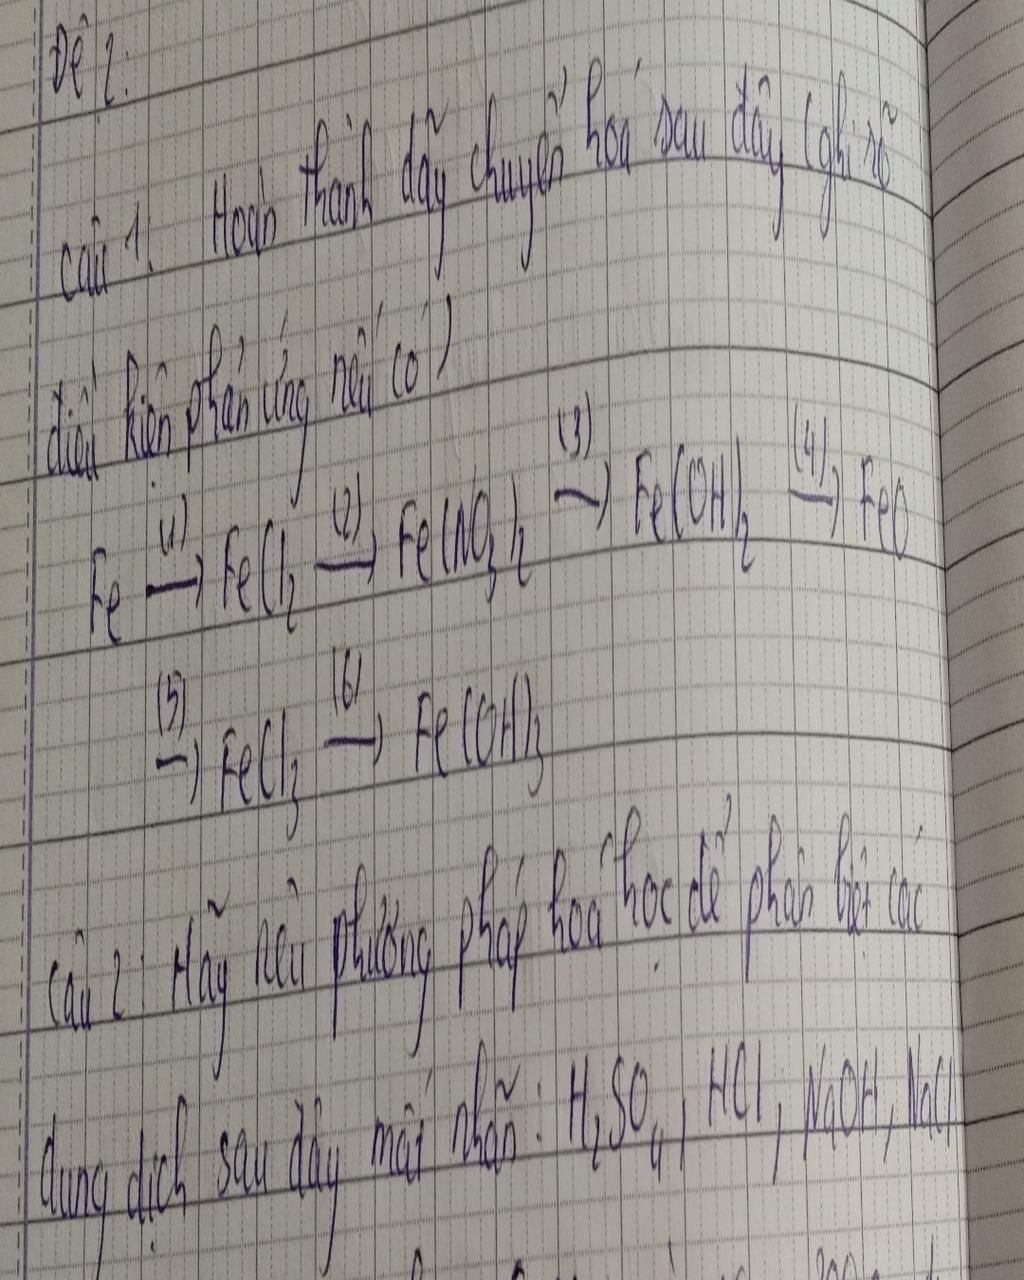 Đề 2:
Câu 1. Hoàn thành dãy chuyển hoá sau đây (ghi rõ
điều kiện phản ứng nếu có)
Fe (1)→ FeCl2 (2)→ Fe(NO3)2 (3)→ Fe(OH)2 (4)→ FeO
(5)→ FeCl3 (6)→ Fe(OH)3
Câu 2: Hãy nêu phương pháp hoá học để phân biệt các
dung dịch sau đây mất nhãn: H2SO4, HCl, NaOH, NaCl